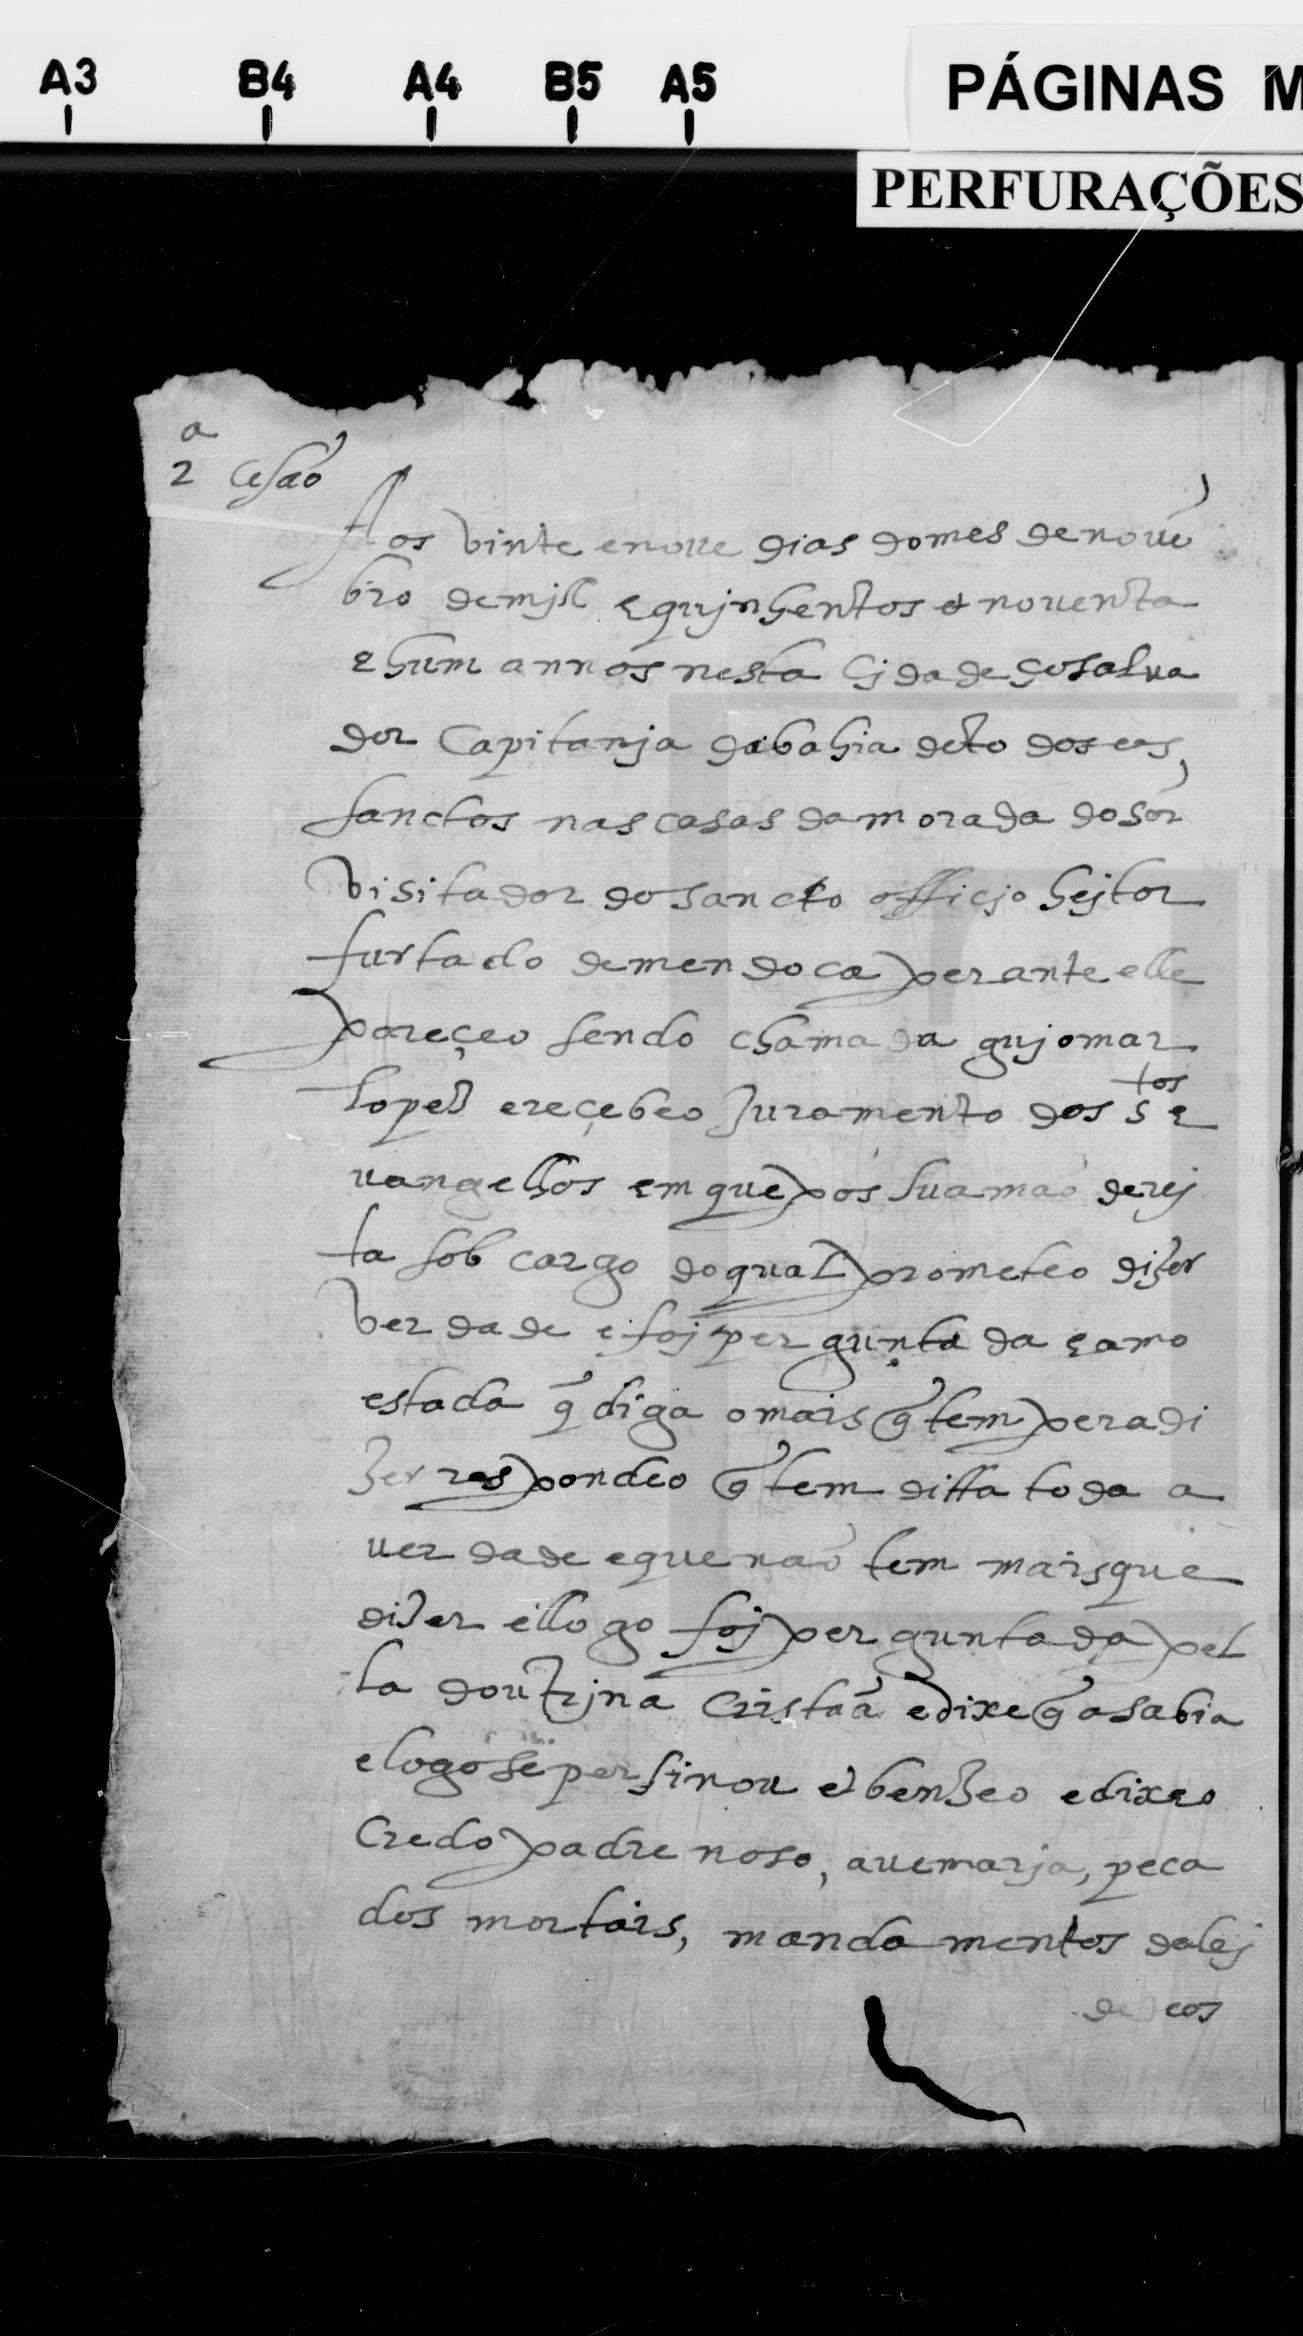 A3 B4 A4 B5 A5
PÁGINAS M
PERFURAÇÕES
2ª cesaõ
Aos vinte e nove dias do mes de novẽ
bro de mjl e qujnhentos e noventa
e hum annos nesta cjdade do salva
dor Capitanja da bahia de to dos os
sanctos nas casas da morada do sõr
visitador do sancto officjo hejtor
furtado de mendoca perante elle
pareçeo sendo chamada gujomar
lopes e reçebeo Juramento dos stos e
vangelhos em que pos sua mão derej
ta sob cargo do qual prometeo dizer
verdade e foj perguntada e amo
estada q̃ diga o mais q̃ tem pera di
zer respondeo q̃ tem ditta toda a
verdade e que não tem mais que
dizer e llogo foj perguntada pel
la doutrjna Cristaã e dixe q̃ a sabia
e logo se persinou e benzeo e dixe o
Credo padre noso, avemarja, peca
dos mortais, mandamentos da lej
de deos